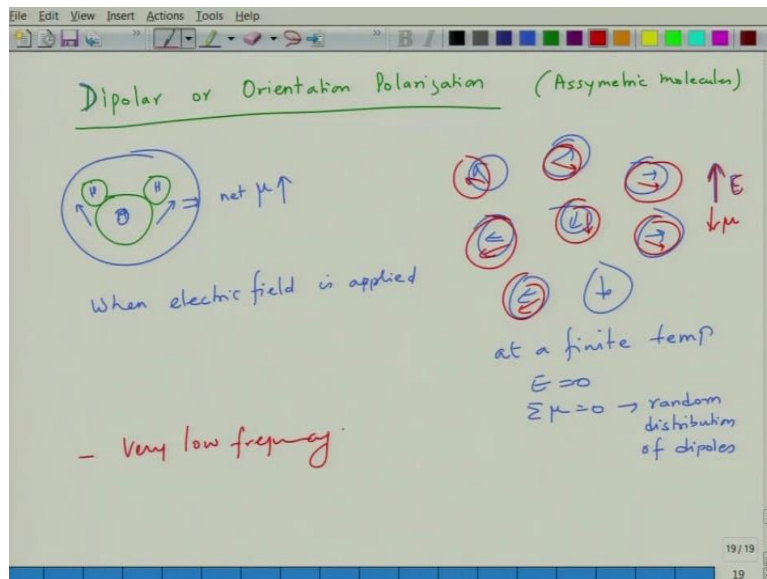 File Edit View Insert Actions Tools Help
B I
Dipolar or Orientation Polarization (Assymetric molecules)
H H
O
⇒ net μ↑
↑ E
↓ μ
When electric field is applied
at a finite temp
E = 0
Σμ = 0 → random
distribution
of dipoles
- Very low frequency.
19/19
19